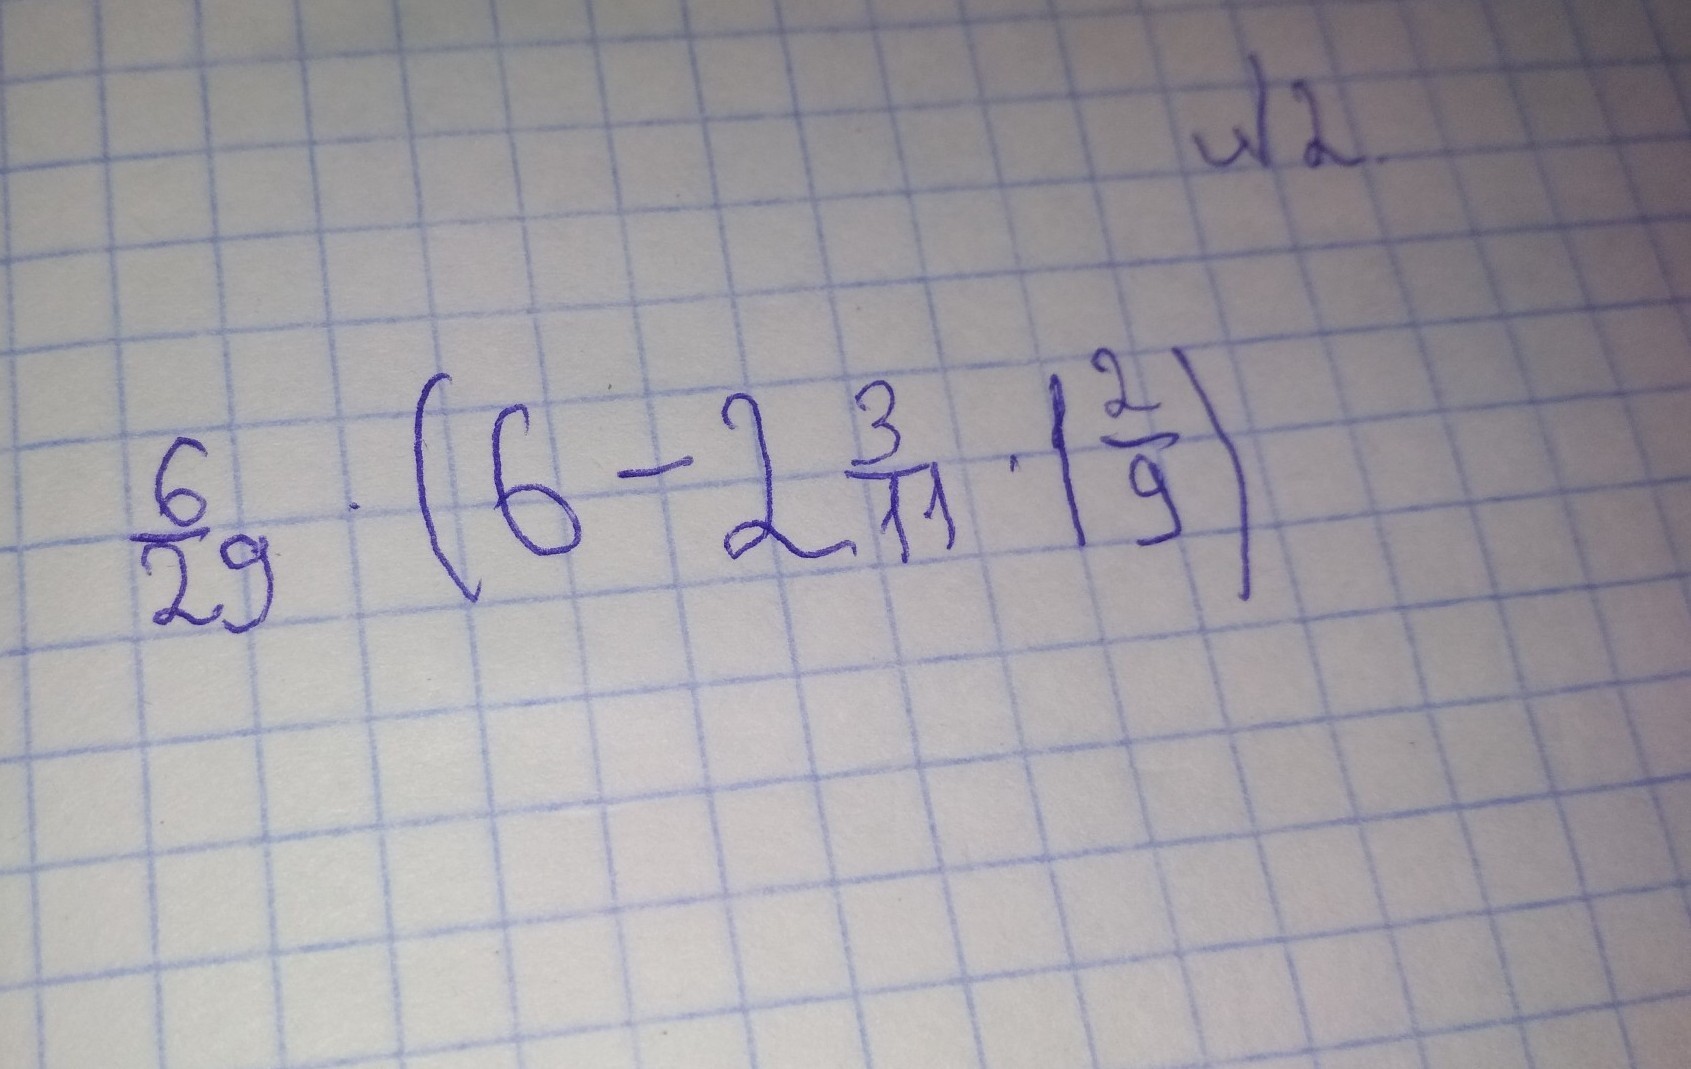 №2.
6/29 · (6 - 2 3/11 · 1 2/9)